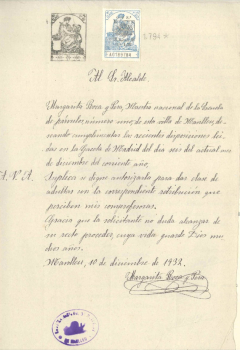 Al Sr. Alcalde
Margarita Roca y Pera, Maestra nacional de la Escuela
de párvulos, número uno de esta villa de Manlleu, de-
seando cumplimentar las recientes disposiciones leí-
das en la Gaceta de Madrid del día seis del actual mes
de diciembre del corriente año,
A V. A.
Suplica se digne autorizarla para dar clase de
adultos con la correspondiente retribución que
perciben mis comprofesoras.
Gracia que la solicitante no duda alcanzar de
su recto proceder, cuya vida guarde Dios mu-
chos años.
Manlleu, 10 de diciembre de 1932.
Margarita Roca y Pera